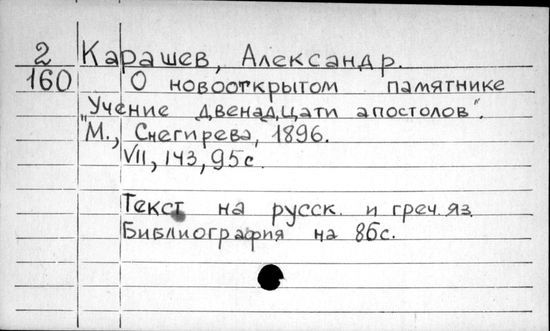 2 Карашев, Александр.
160 О новооткрытом памятнике
"Учение двенадцати апостолов".
М., Снегирева, 1896.
VII, 143, 95 с.
Текст на русск. и греч. яз.
Библиография на 86с.